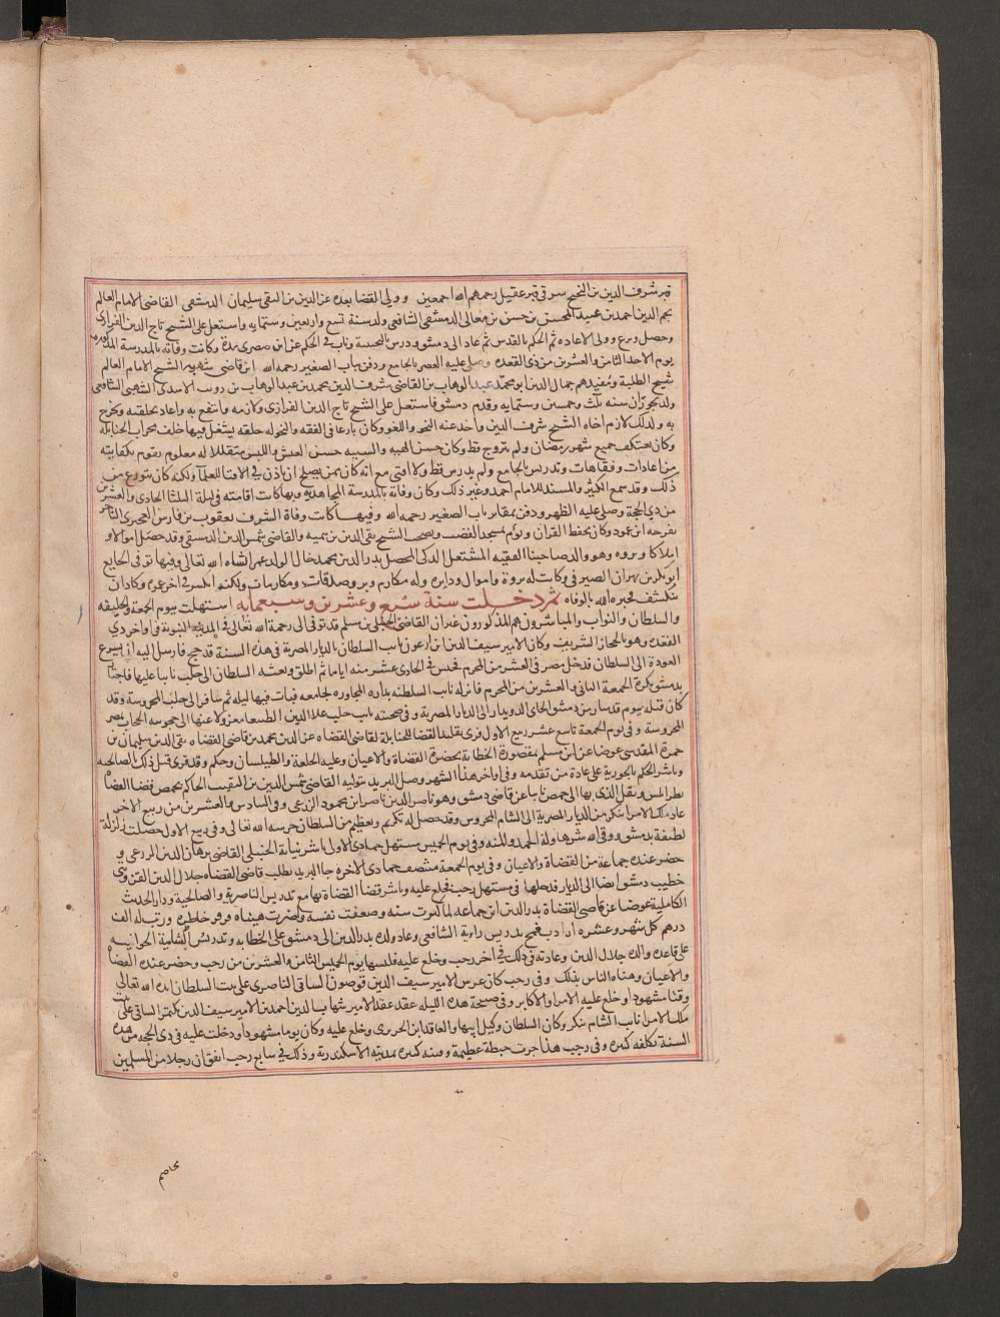 قبر شرف الدين بن النجيح سرقي قبر عقيل رحمهم الله اجمعين وولى القضا بعده عز الدين بن التقي سليمان الدمشقى القاضى الامام العالم
نجم الدين احمد بن عبد المحسن بن حسن بن معالى الدمشقى الشافعى ولد سنة تسع واربعين وستمايه واشتغل على الشيخ تاج الدين الفزارى
وحصل وبرع وولى الاعاده ثم الحكم بالقدس ثم عاد الى دمشق ودرس بالنجيبية وناب فى الحكم عن ابن صصرى مدة وكانت وفاته بالمدرسة المذكوره
يوم الاحد الثامن والعشرين من ذى القعده وصلى عليه العصر بالجامع ودفن بباب الصغير رحمه الله ابن قاضى شهبه الشيخ الامام العالم
شيخ الطلبة ومفيدهم جمال الدين ابو محمد عبد الوهاب بن القاضى شرف الدين محمد بن عبد الوهاب بن دويب الاسدى الشهبى الشافعى
ولد بحوران سنه ثلث وخمسين وستمايه وقدم دمشق فاشتغل على الشيخ تاج الدين الفزارى ولازمه وانتفع به واعاد بحلقته وتخرج
به وكذلك لازم اخاه الشيخ شرف الدين واخذ عنه النحو واللغو وكان بارعا فى الفقه والنحو له حلقه يشتغل فيها خلف محراب الحنابله
وكان يعتكف جميع شهر رمضان ولم يتزوج قط وكان حسن الهيبه والشيبه حسن العيش واللبس متقللا له معلوم يقوم بكفايته
من اعادات وفقاهات وتدريس بالجامع ولم يدرس قط ولا افتى مع انه كان ممن يصلح ان ياذن فى الافتا للعلما ولكنه كان يتورع من
ذلك وقد سمع الكثير والمسند للامام احمد وغير ذلك وكان وفاته بالمدرسة المجاهديه وبها كانت اقامته فى ليلة الثلثا الحادى والعشرين
من ذى الحجة وصلى عليه الظهر ودفن بمقابر باب الصغير رحمه الله وفيها كانت وفاة الشرف يعقوب بن فارس الجعبرى التاجر
بفرجه ابن عمود وكان يحفظ القران ويؤم بمسجد القصب ويصحب الشيخ تقى الدين بن تيميه والقاضى شمس الدين الدمشقى وقد حصل اموالا و
املاكا وثروه وهو والد صاحبنا الفقيه المشتغل الذكى المحصل بدر الدين محمد خال الولد عمر انشاه الله تعالى وفيها توفى الحاج
ابو بكر بن تيمران الصيرفى وكانت له ثروة واموال ودايره وله مكارم وبر وصدقات ومكارمات ولكنه انكسر فى اخر عمره وكاد ان
ينكشف فجبره الله بالوفاه ثم دخلت سنة سبع وعشرين وسبعمايه استهلت بيوم الجمعة والخليفه
والسلطان والنواب والمباشرون هم المذكورون غير ان القاضى الحنبلى بن مسلم قد توفى الى رحمة الله تعالى فى المدينة النبوية فى اواخر ذى
القعده وهو بالحجاز الشريف وكان الامير سيف الدين ابن ارغون نايب السلطان بالديار المصرية فى هذه السنة قد حج فارسل اليه ان يسرع
العودة الى السلطان فدخل مصر فى العشر من المحرم فحبس فى الحادى عشر منه اياما ثم اطلق وبعثه السلطان الى حلب نايبا عليها فاجتاز
بدمشق بكرة الجمعة الثانى والعشرين من المحرم فانزله نايب السلطنه بداره المجاوره لجامعه فبات فيها ليله ثم سافر الى حلب المحروسة وقد
كان قبله بيوم قد سار من دمشق الجاى الدويدار الى الديار المصرية وفى صحبته نايب حلب علا الدين الطنبغا معزولا عنها الى حجوبيه الحجاب بمصر
المحروسة وفى يوم الجمعة تاسع عشر ربيع الاول قرى تقليد القضا للحنابلة لقاضى القضاه عز الدين محمد بن قاضى القضاه تقى الدين سليمان بن
حمزة المقدسى عوضا عن ابن مسلم بمقصورة الخطابة بحضرة القضاة والاعيان وعليه الخلعة والطيلسان وحكم وقد قرى قبل ذلك بالصالحيه
وباشر الحكم بالجوزية على عادة من تقدمه وفى اواخر هذا الشهر وصل البريد بتوليه القاضى شمس الدين بن النقيب الحاكم بحمص قضا القضاه
بطرابلس ونقل الذى بها الى حمص نايبا عن قاضى دمشق وهو ناصر الدين ناصر بن محمود الزرعى وفى السادس والعشرين من ربيع الاخر
عاد ملك الامرا تنكز من الديار المصرية الى الشام المحروس وقد حصل له تكريم وتعظيم من السلطان حرسه الله تعالى وفى ربيع الاول حصلت زلزلة
لطيفة بدمشق ووقى الله شرها وله الحمد والمنه وفى يوم الخميس مستهل جمادى الاولى باشر نيابة الحنبلى القاضى برهان الدين الزرعى و
حضر عنده جماعة من القضاة والاعيان وفى يوم الجمعة منتصف جمادى الاخره جا البريد بطلب قاضى القضاه جلال الدين القزوينى
خطيب دمشق ايضا الى الديار فدخلها فى مستهل رجب فخلع عليه وباشر قضا القضاة بها مع تدريس الناصرية والصالحية ودار الحديث
الكاملية عوضا عن قاضى القضاة بدر الدين ابن جماعه لما كبرت سنه وضعفت نفسه واضرت عيناه فرفر خاطره ورتب له الف
درهم كل شهر وعشره ارادب قمح بتدريس زاوية الشافعى وعاد ولده بدر الدين الى دمشق على الخطابه وتدريس الشامية الجوانيه
على قاعدة والده جلال الدين وعادته فى ذلك فى اخر رجب وخلع عليه فلبسها يوم الخميس الثامن والعشرين من رجب وحضر عنده القضاه
والاعيان وهناه الناس بذلك وفى رجب كان عرس الامير سيف الدين قوصون الساقى الناصرى على بنت السلطان ايده الله تعالى
وقتا مشهودا وخلع عليه الامرا والاكابر وفى صبيحة هذه الليله عقد عقد الامير شهاب الدين احمد بن الامير سيف الدين بكتمر الساقى على بنت
ملك الامرا نايب الشام تنكز وكان السلطان وكيل ابيها والعاقد ابن الحريرى وخلع عليه وكان يوما مشهودا ودخلت عليه فى ذى الحجه من هذه
السنة بكلفه كبيره وفى رجب هذا جرت خبطة عظيمة وفتنه كبيره بمدينة الاسكندرية وذلك فى سابع رجب اتفق ان رجلا من المسلمين
تخاصم